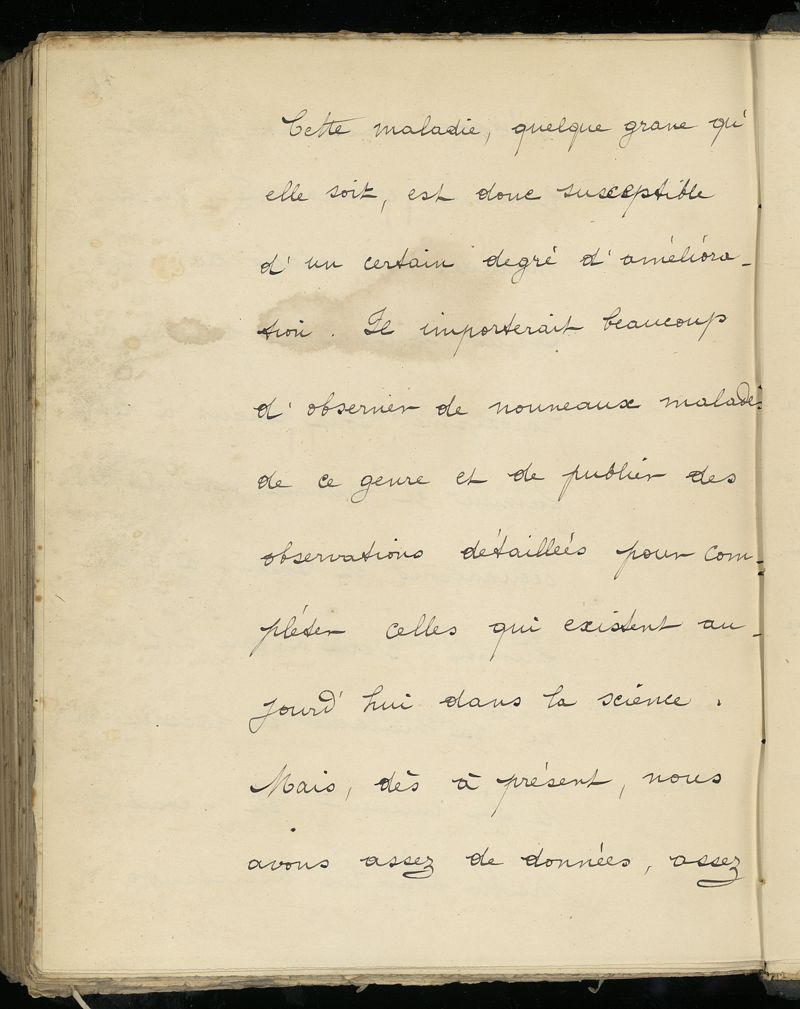 Cette maladie, quelque grave qu'
elle soit, est donc susceptible
d'un certain degré d'améliora-
tion. Il importerait beaucoup
d'observer de nouveaux malades
de ce genre et de publier des
observations détaillées pour com-
pléter celles qui existent au-
jourd'hui dans la science.
Mais, dès à présent, nous
avons assez de données, assez